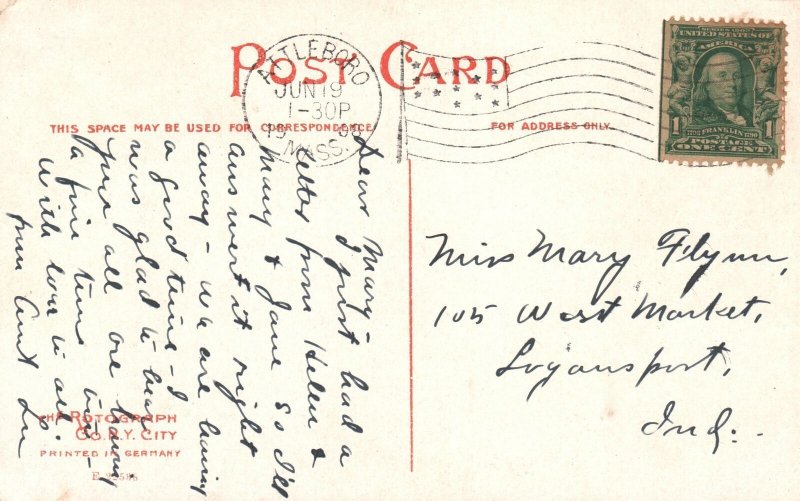 POST CARD
THIS SPACE MAY BE USED FOR CORRESPONDENCE
FOR ADDRESS ONLY.
ATTLEBORO
JUN 19
1-30P
MASS.
SERIES 1902
UNITED STATES OF AMERICA
1 FRANKLIN 1
POSTAGE
ONE CENT
Dear Mary-
I just had a
letter from Helen &
Mary & Jane so I'll
answer it right
away - we are having
a good time - I
was glad to hear
you all are having
a fine time too -
with love to all.
from Aunt Lu
Miss Mary Flynn,
105 West Market,
Logansport,
Ind.
THE ROTOGRAPH
CO. N.Y. CITY
PRINTED IN GERMANY